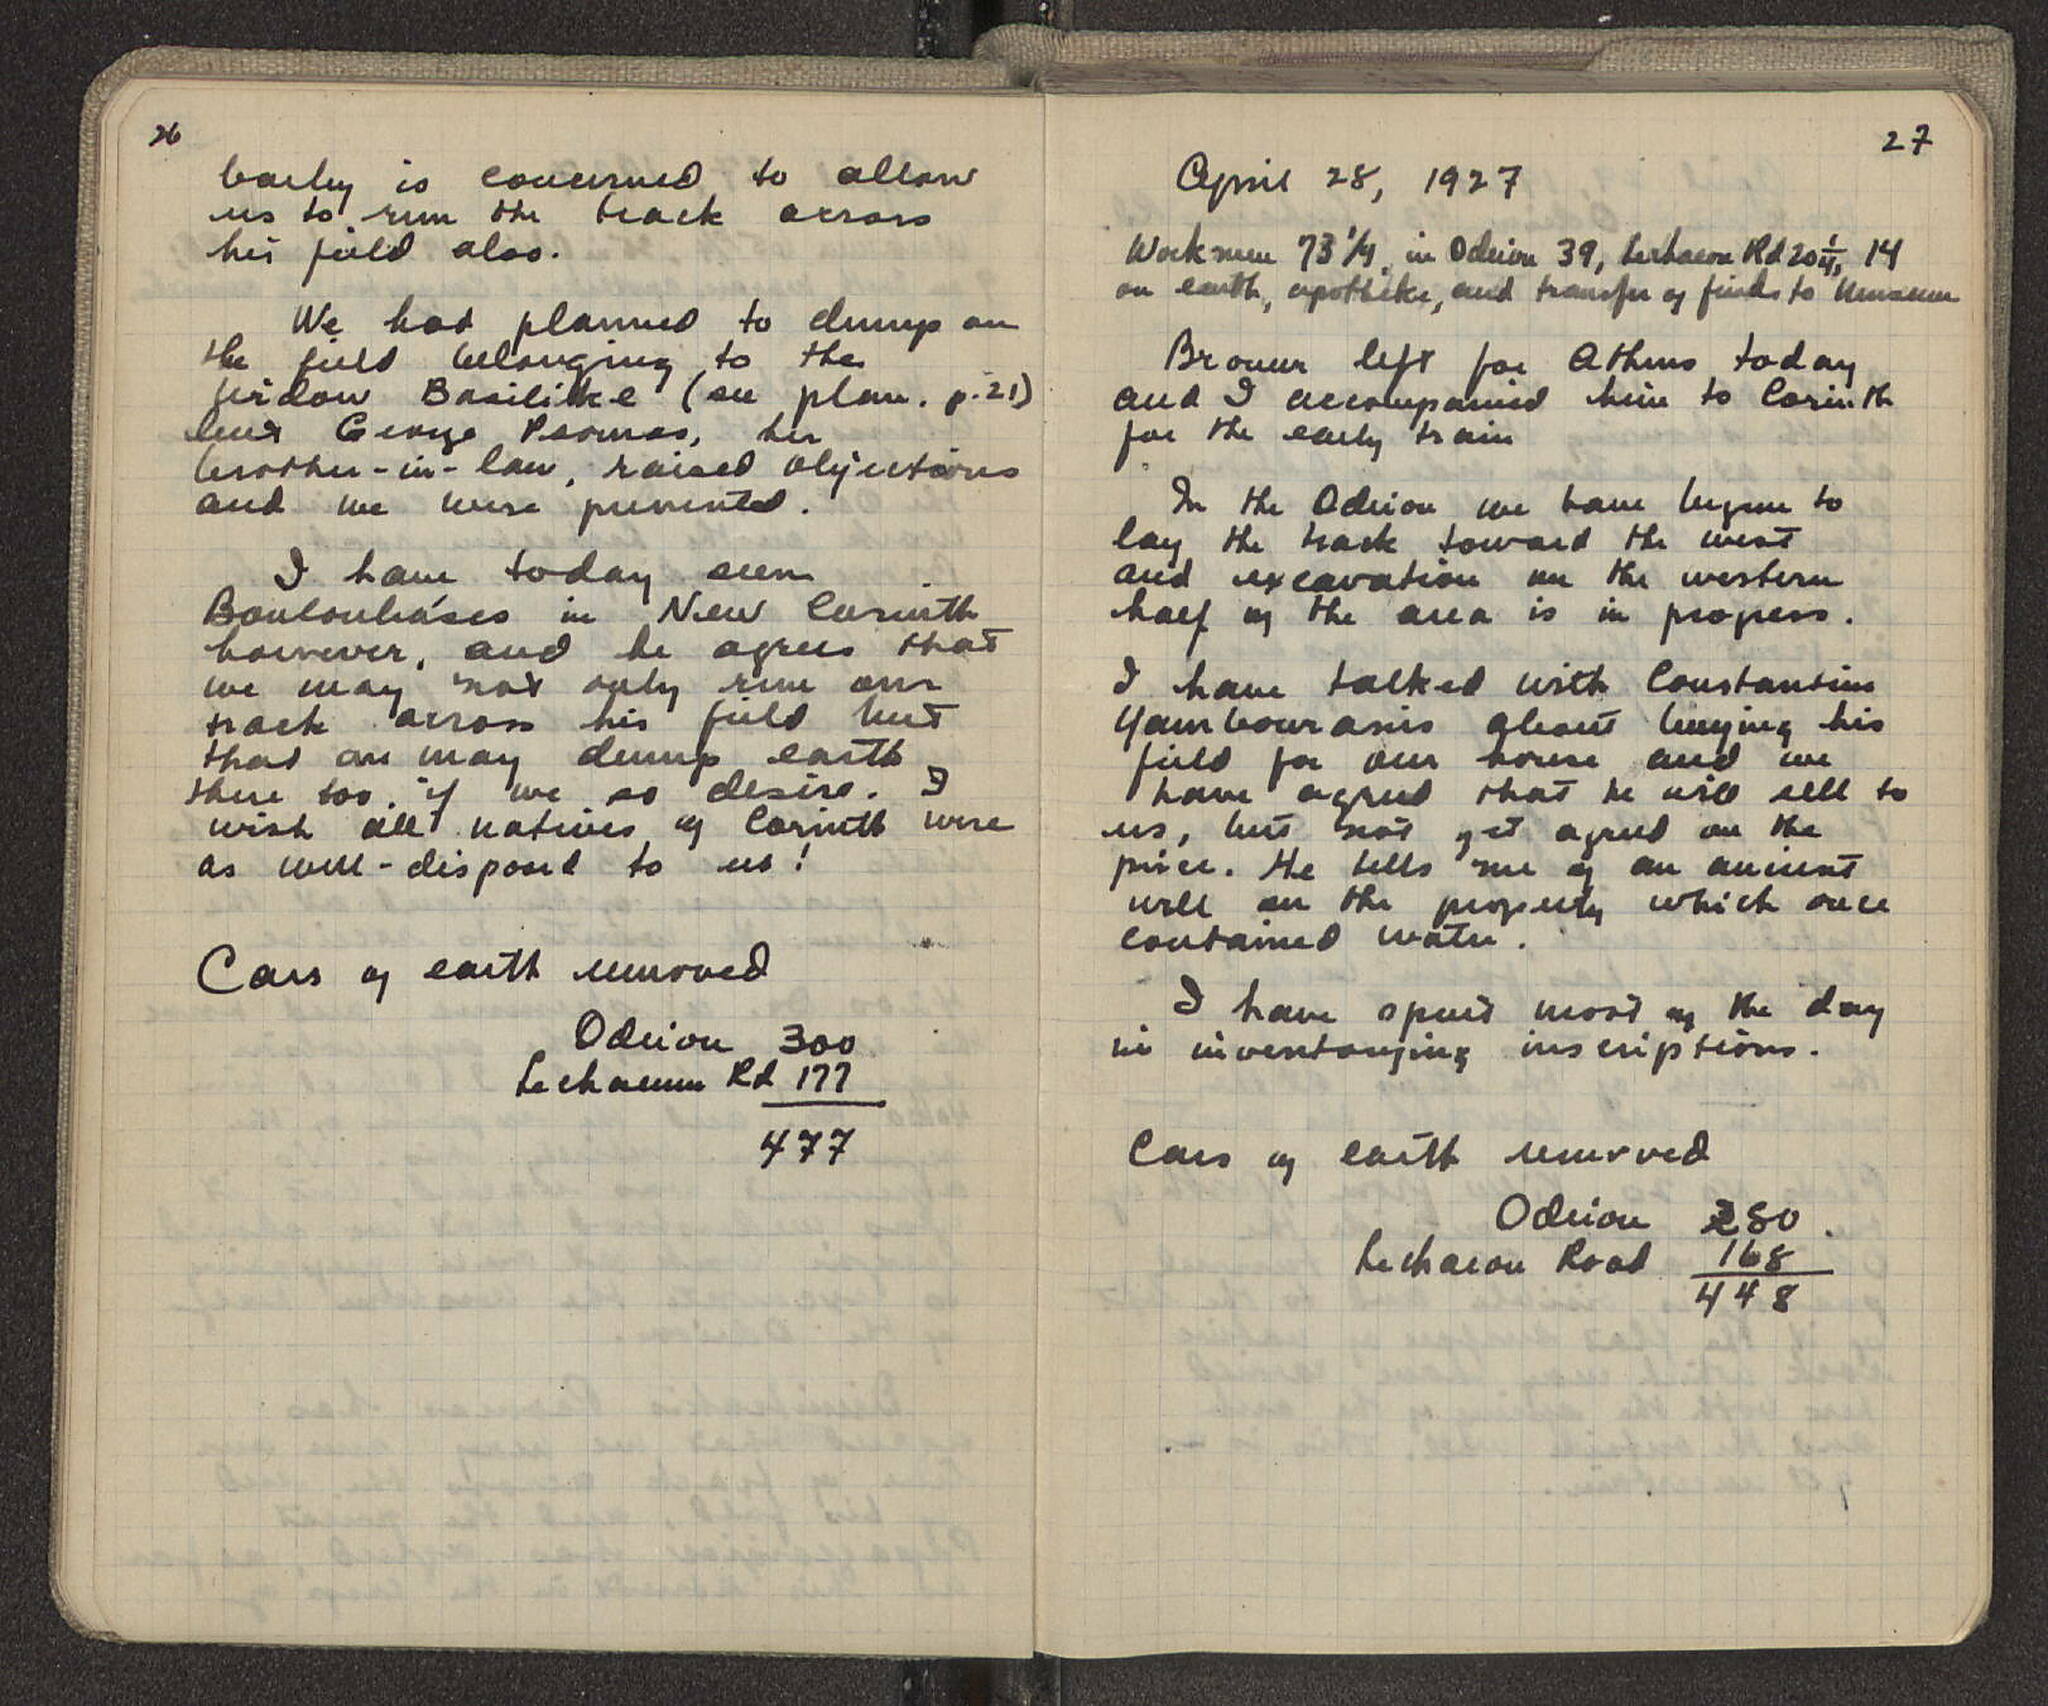 26
barley is concerned, to allow
us to run the track across
his field also.
We had planned to dump on
the field belonging to the
widow Basilike (see plan. p. 21)
but George Psomas, her
brother-in-law, raised objections
and we were prevented.
I have today seen
in New Corinth
however, and he agrees that
we may not only run our
track across his field but
that we may dump earth
there too, if we so desire. I
wish all natives of Corinth were
as well-disposed to us!
Cars of earth removed
Odeion 300
Lechaeum Rd 177
477
27
April 28, 1927
Workmen 73 1/4, in Odeion 39, Lechaeon Rd 20 1/4, 14
on earth, apotheke, and transfer of finds to Museum
Broneer left for Athens today
and I accompanied him to Corinth
for the early train
In the Odeion we have begun to
lay the track toward the west
and excavation on the western
half of the area is in progress.
I have talked with Constantine
Yambouranis about buying his
field for our house and we
have agreed that he will sell to
us, but not yet agreed on the
price. He tells me of an ancient
well on the property which once
contained water.
I have spent most of the day
in inventorying inscriptions.
Cars of earth removed
Odeion 280
Lechaeon Road 168
448